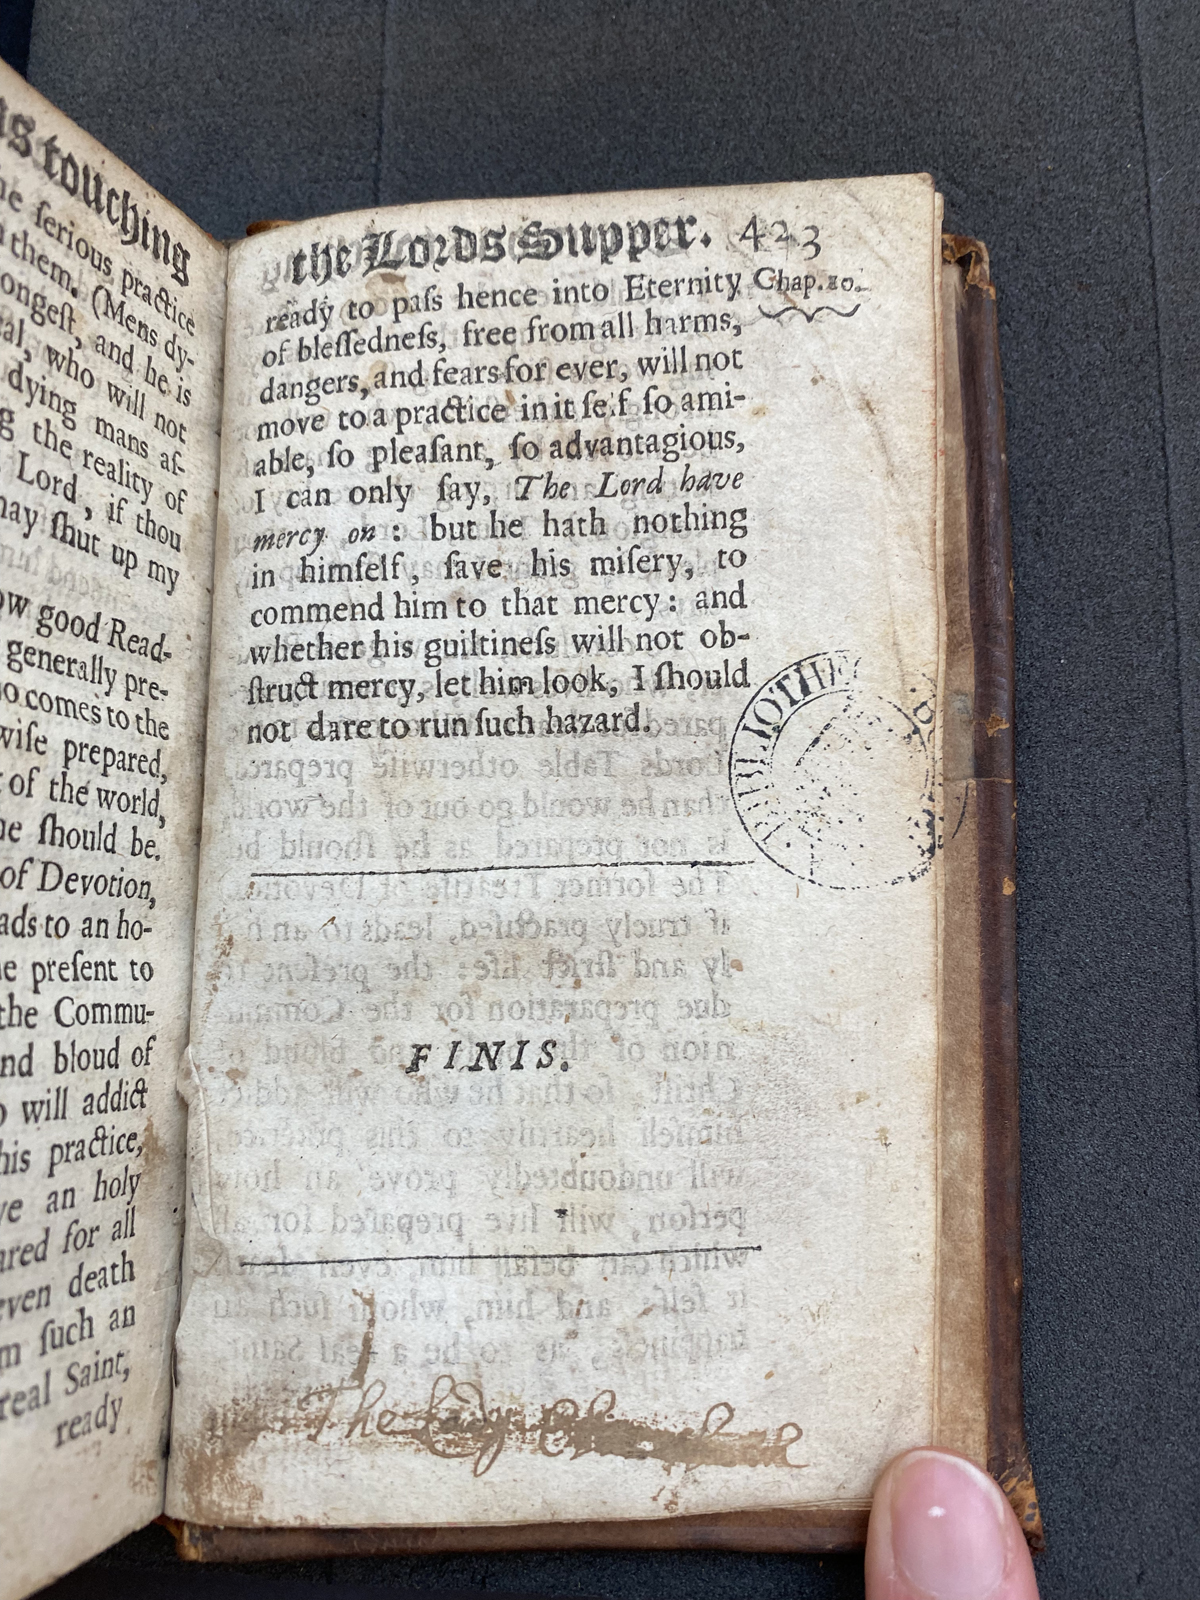 touching
serious practice
them. (Mens dy-
ongest, and he is
who will not
dying mans aſ-
the reality of
Lord, if thou
may ſhut up my
good Read-
generally pre-
comes to the
prepared,
of the world,
ſhould be.
of Devotion,
to an ho-
preſent to
the Commu-
bloud of
will addict
practice,
an holy
for all
even death
ſuch an
real Saint,
ready
the Lords Supper. 423
Chap. 20.
ready to paſs hence into Eternity
of bleſſedneſs, free from all harms,
dangers, and fears for ever, will not
move to a practice in it ſelf ſo ami-
able, ſo pleaſant, ſo advantagious,
I can only ſay, The Lord have
mercy on : but he hath nothing
in himſelf, ſave his miſery, to
commend him to that mercy : and
whether his guiltineſs will not ob-
ſtruct mercy, let him look, I ſhould
not dare to run ſuch hazard.
BIBLIOTHE
FINIS.
The Lady